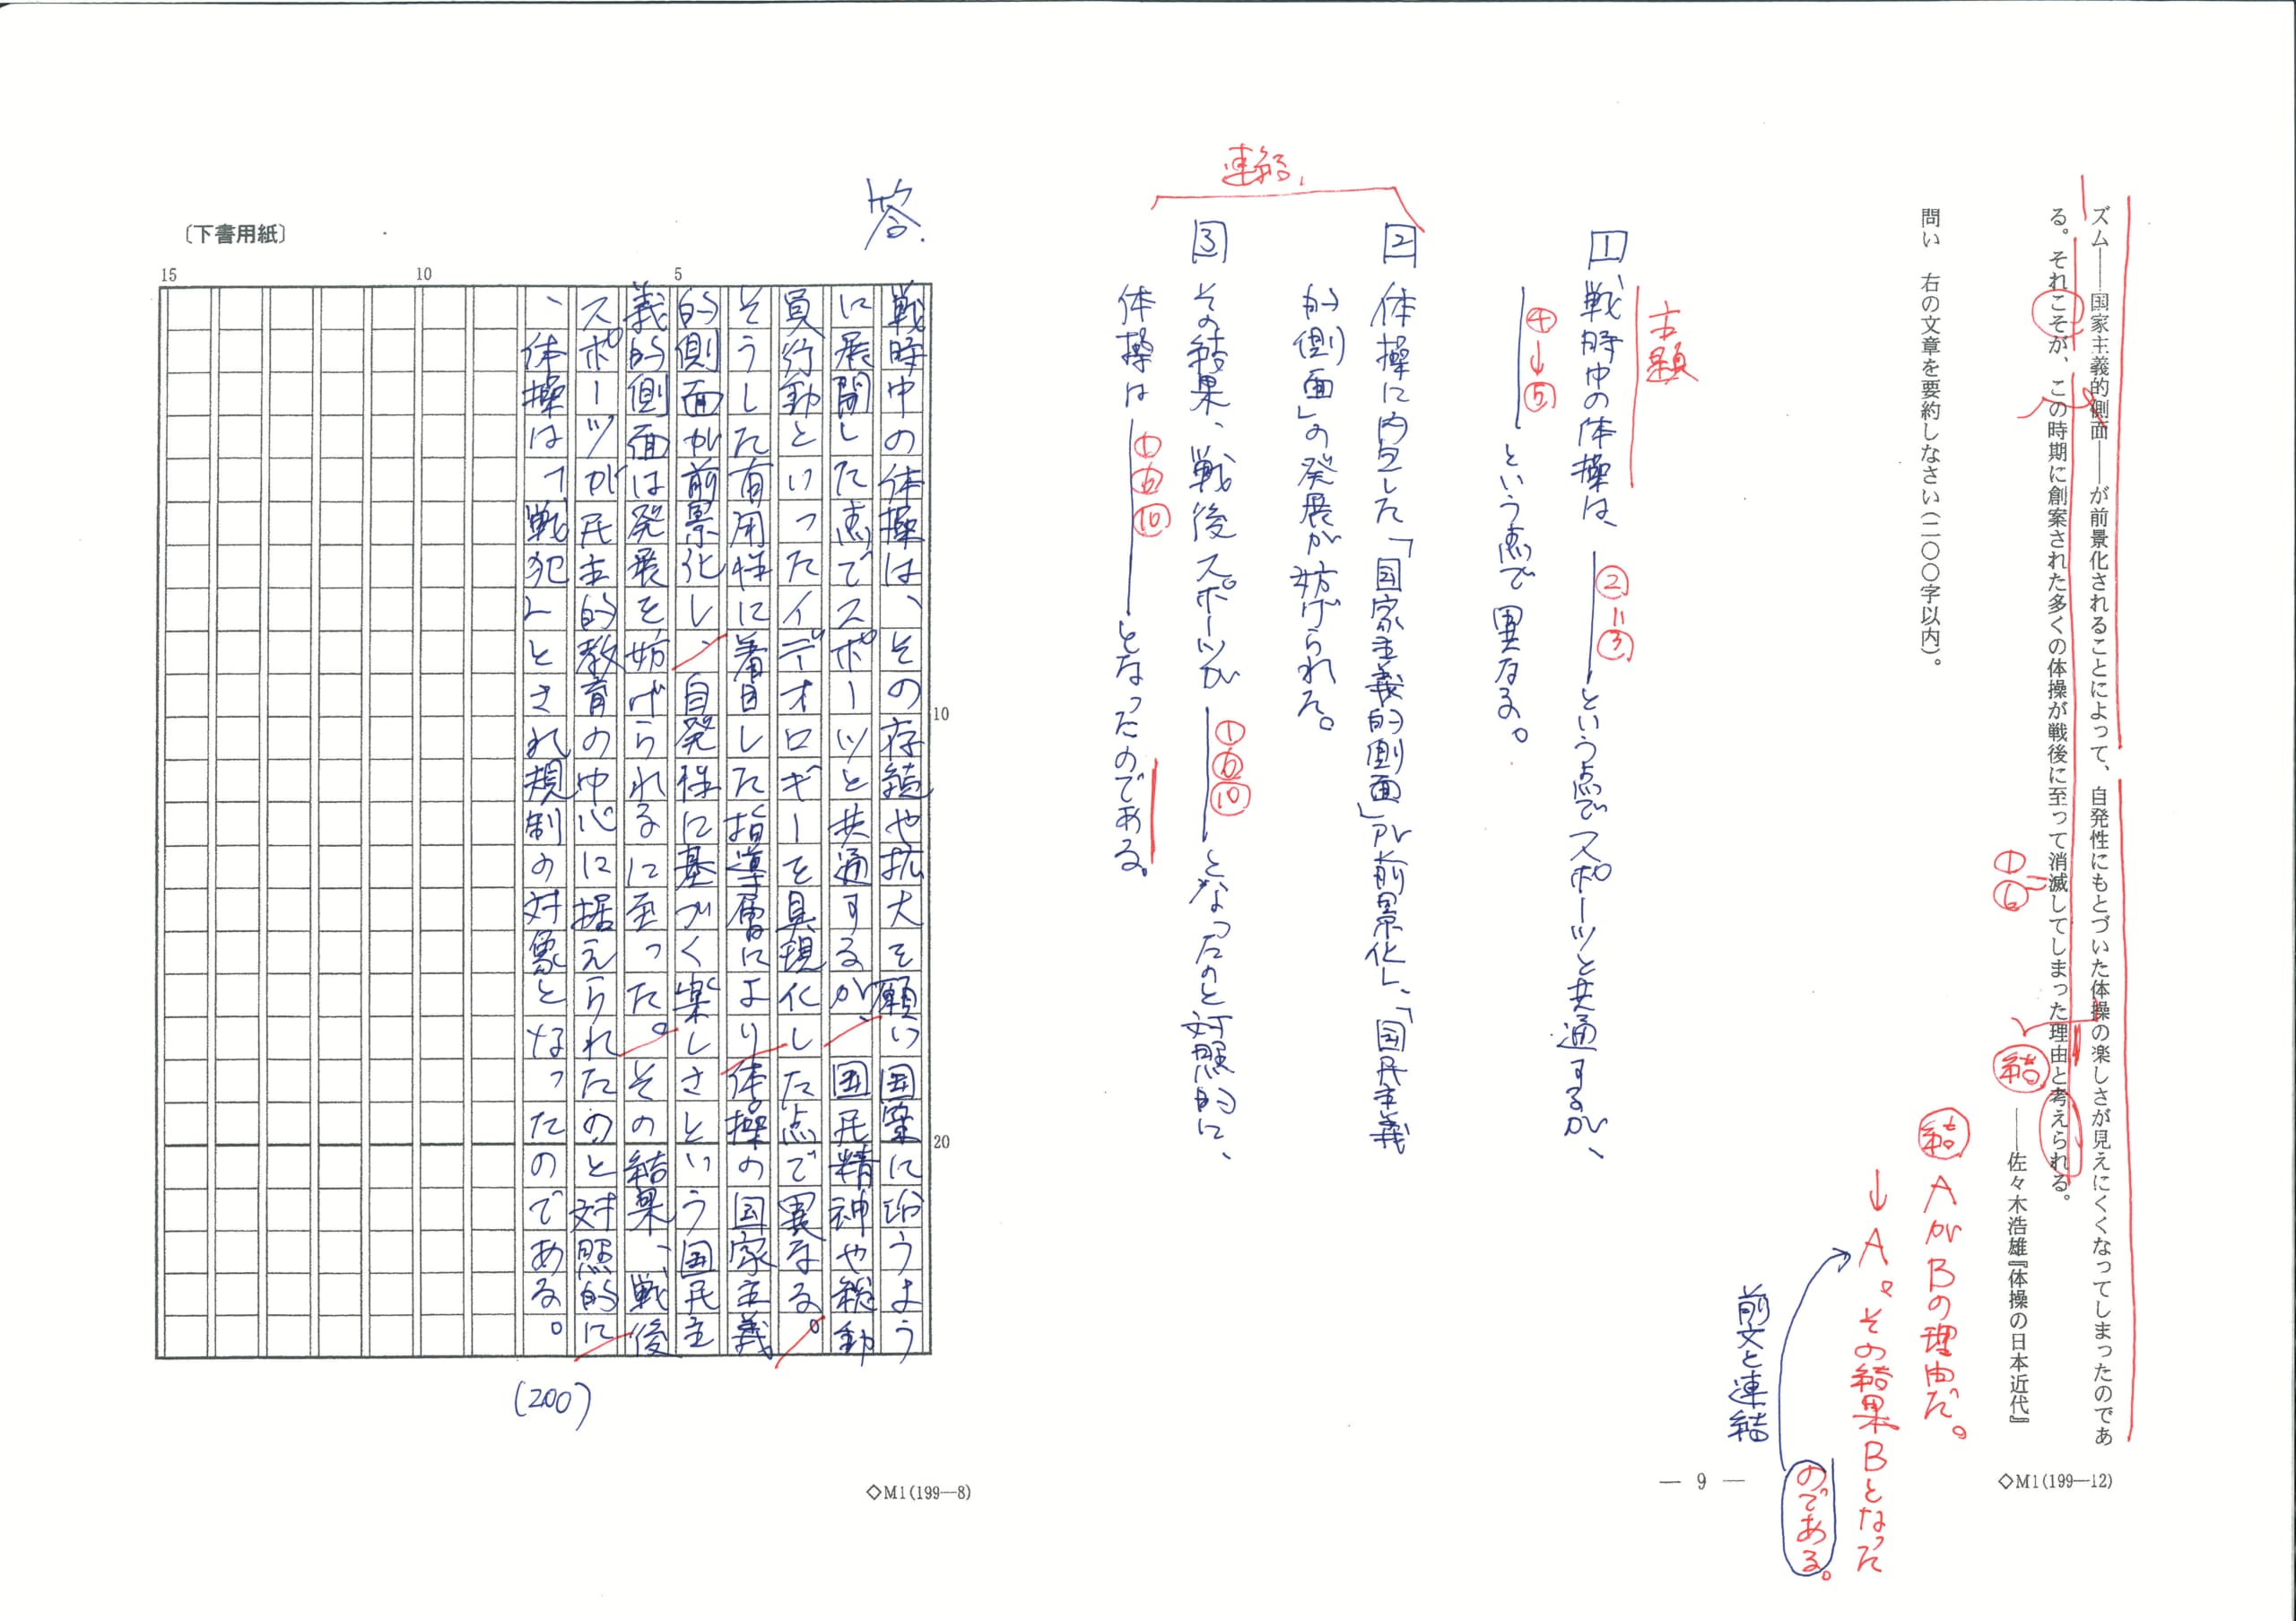 ズム――国家主義的側面――が前景化されることによって、自発性にもとづいた体操の楽しさが見えにくくなってしまったのであ
る。それこそが、この時期に創案された多くの体操が戦後に至って消滅してしまった理由と考えられる。
①
⑥
結
――佐々木浩雄『体操の日本近代』
問い　右の文章を要約しなさい(二〇〇字以内)。
結 AがBの理由だ。
↓A。その結果Bとなった
のである。
前文と連結
主題
1 戦時中の体操は、②＝③という点でスポーツと共通するが、
④→⑤という点で異なる。
連結
2 体操に内包した「国家主義的側面」が前景化し、「国民主義
的側面」の発展が妨げられた。
3 その結果、戦後スポーツが①⑥⑩となったのと対照的に、
体操は①⑥⑩となったのである。
答.
戦時中の体操は、その存続や拡大を願い国策に沿うよう
に展開した点でスポーツと共通するが、国民精神や総動
員行動といったイデオロギーを具現化した点で異なる。
そうした有用性に着目した指導層により体操の国家主義
的側面が前景化し、自発性に基づく楽しさという国民主
義的側面は発展を妨げられるに至った。その結果、戦後
スポーツが民主的教育の中心に据えられたのと対照的に
、体操は「戦犯」とされ規制の対象となったのである。
(200)
〔下書用紙〕
15
10
5
10
20
◇M1(199―12)
― 9 ―
◇M1(199―8)